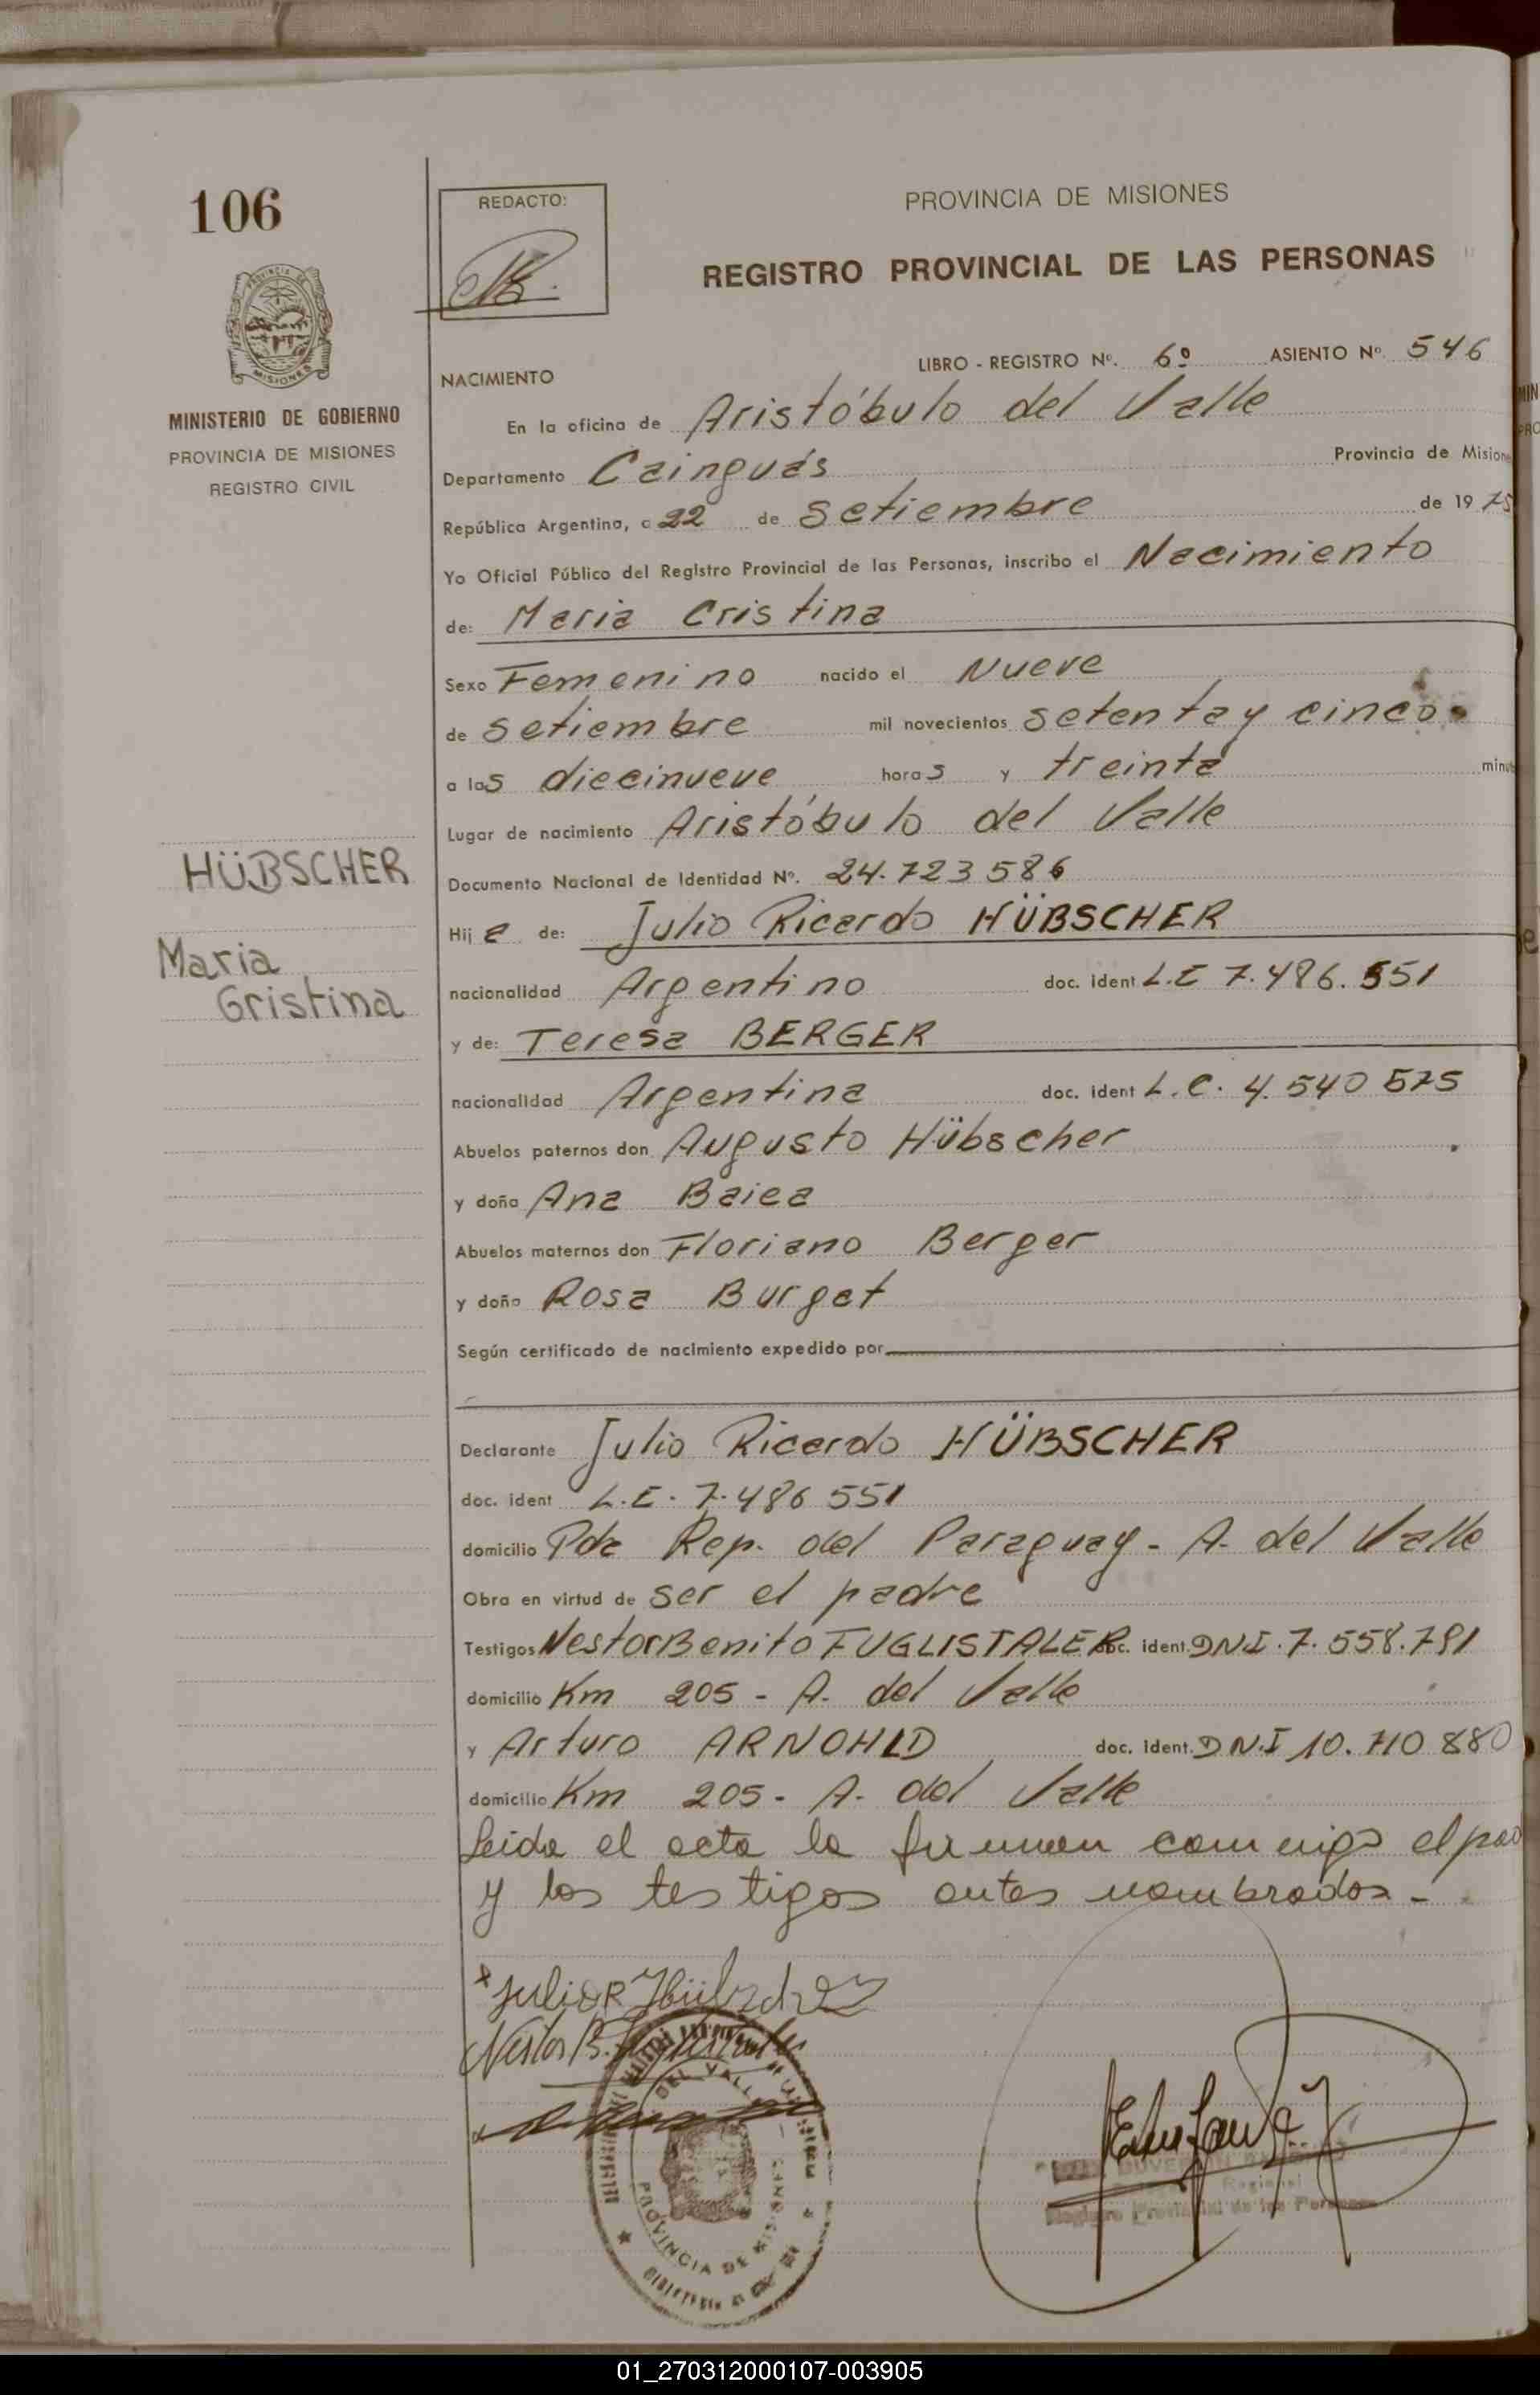 106
REDACTO:
PROVINCIA DE MISIONES
REGISTRO PROVINCIAL DE LAS PERSONAS
MISIONES
MINISTERIO DE GOBIERNO
PROVINCIA DE MISIONES
REGISTRO CIVIL
LIBRO - REGISTRO Nº. 6º ASIENTO Nº. 546
NACIMIENTO
En la oficina de Aristóbulo del Valle
Departamento Cainguás Provincia de Misione
República Argentina, a 22 de Setiembre de 1975
Yo Oficial Público del Registro Provincial de las Personas, inscribo el Nacimiento
de: Maria Cristina
Sexo Femenino nacido el Nueve
de setiembre mil novecientos setenta y cinco
a las diecinueve horas y treinta minut
Lugar de nacimiento Aristóbulo del Valle
HÜBSCHER
Maria
Cristina
Documento Nacional de Identidad Nº. 24.723586
Hija de: Julio Ricardo HÜBSCHER
nacionalidad Argentino doc. ident L.E 7.486.551
y de: Teresa BERGER
nacionalidad Argentina doc. ident L.C. 4.540 575
Abuelos paternos don Augusto Hübscher
y doña Ana Baiea
Abuelos maternos don Floriano Berger
y doña Rosa Burgat
Según certificado de nacimiento expedido por
Declarante Julio Ricardo HÜBSCHER
doc. ident L.E. 7.486 551
domicilio Pda Rep. del Paraguay - A. del Valle
Obra en virtud de ser el padre
Testigos Nestor Benito FUGLISTALER doc. ident. DN.I. 7.558.791
domicilio Km 205 - A. del Valle
y Arturo ARNOHLD doc. ident. DN.I 10.710 880
domicilio Km 205 - A. del Valle
Leida el acta la firman conmigo el pad
y los testigos antes nombrados.-
Julio R Hübscher
Nestor B.
DEL VALLE
PROVINCIA DE MISIONES
Regional
Registro Provincial de las Personas
01_270312000107-003905